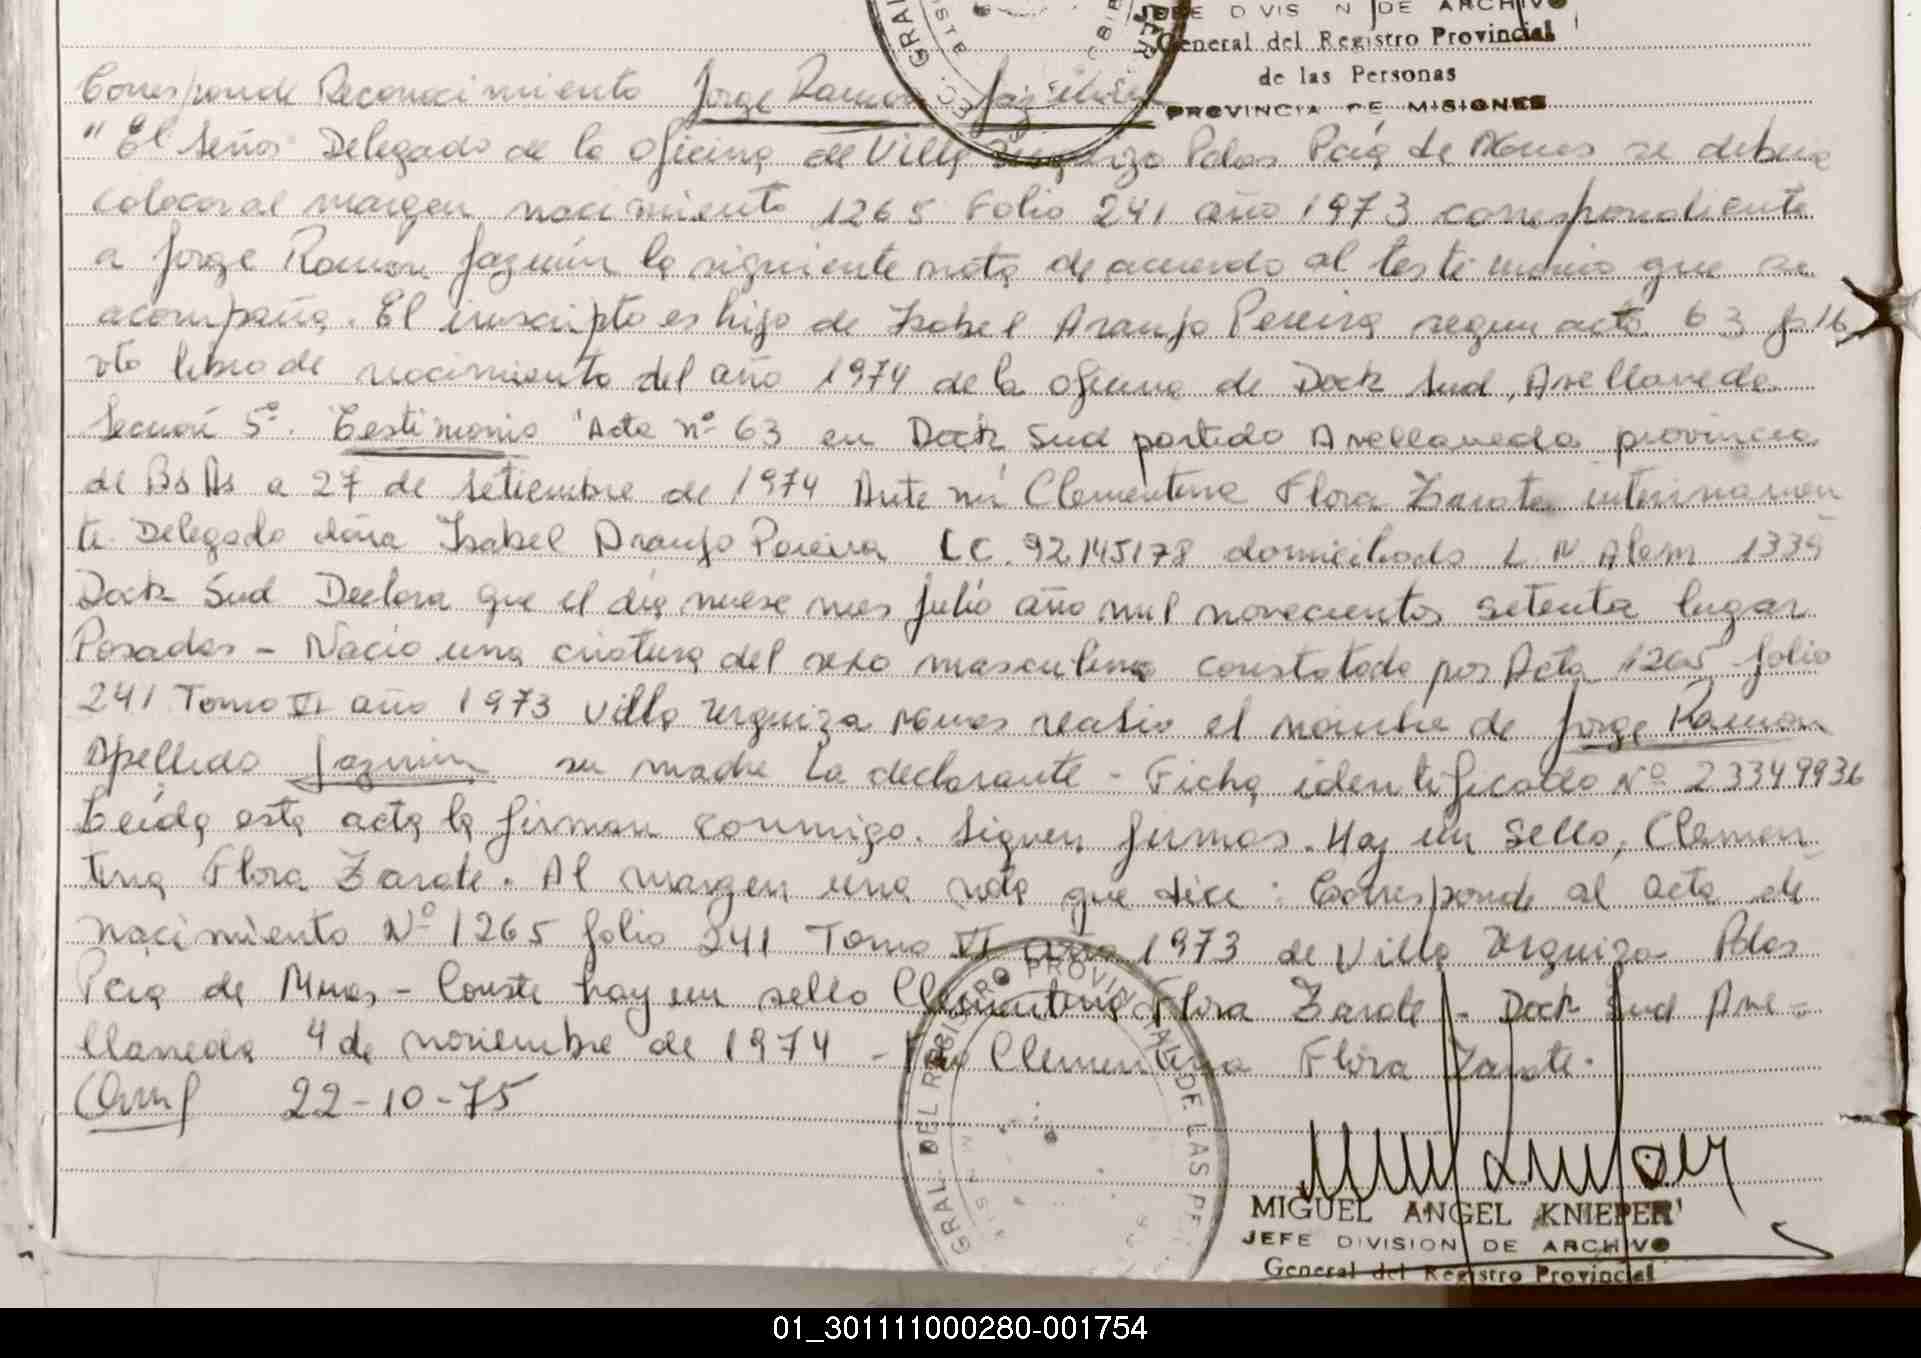 JEFE DIVISION DE ARCHIVO
General del Registro Provincial
de las Personas
PROVINCIA DE MISIONES
Corresponde Reconocimiento Jorge Ramon Jazmin
"El Señor Delegado de la Oficina de Villa Urquiza Pdas Pcia de Mnes se debera
colocar al margen nacimiento 1265 Folio 241 año 1973 correspondiente
a Jorge Ramon Jazmin la siguiente nota de acuerdo al testimonio que se
acompaña. El inscripto es hijo de Isabel Araujo Pereira segun acta 63 fo 16
vto libro de nacimiento del año 1974 de la oficina de Dock Sud, Avellaneda
Sección 5º. Testimonio "Acta nº 63 en Dock Sud partido Avellaneda provincia
de Bs As a 27 de setiembre de 1974 Ante mi Clementina Flora Zarate interinamen
te Delegado doña Isabel Araujo Pereira LC. 92145178 domiciliada L N Alem 1339
Dock Sud Declara que el dia nueve mes Julio año mil novecientos setenta lugar
Posadas - Nacio una criatura del sexo masculino constatado por Acta 1265 folio
241 Tomo VI año 1973 Villa Urquiza Mnes recibio el nombre de Jorge Ramon
Apellido Jazmin su madre la declarante - Ficha identificatto Nº 23349936
Leida esta acta la firman conmigo. Siguen firmas. Hay un sello, Clemen
tina Flora Zarate. Al margen una nota que dice: Corresponde al acta de
nacimiento Nº 1265 folio 241 Tomo VI año 1973 de Villa Urquiza Pdas
Pcia de Mnes - Conste hay un sello Clementina Flora Zarate - Dock Sud Ave=
llaneda 4 de noviembre de 1974 - Fdo Clementina Flora Zarate.
22-10-75
GRAL. DEL REGISTRO PROVINCIAL DE LAS PE
MIGUEL ANGEL KNIEPER
JEFE DIVISION DE ARCHIVO
General del Registro Provincial
01_301111000280-001754